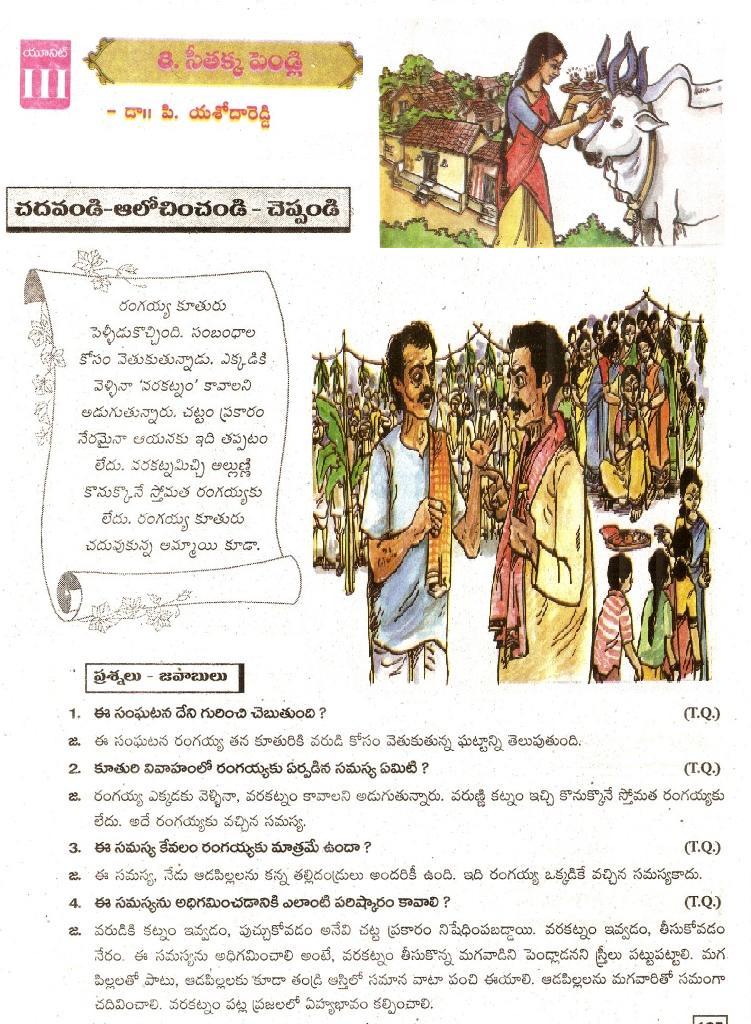 యూనిట్
III
3. సీతక్క పెండ్లి
- డా॥ పి. యశోదారెడ్డి
చదవండి-ఆలోచించండి - చెప్పండి
రంగయ్య కూతురు
పెళ్ళీడుకొచ్చింది. సంబంధాల
కోసం వెతుకుతున్నాడు. ఎక్కడికి
వెళ్ళినా ‘వరకట్నం’ కావాలని
అడుగుతున్నారు. చట్టం ప్రకారం
నేరమైనా ఆయనకు ఇది తప్పటం
లేదు. వరకట్నమిచ్చి అల్లుణ్ణి
కొనుక్కొనే స్తోమత రంగయ్యకు
లేదు. రంగయ్య కూతురు
చదువుకున్న అమ్మాయి కూడా.
ప్రశ్నలు - జవాబులు
1. ఈ సంఘటన దేని గురించి చెబుతుంది ? (T.Q.)
జ. ఈ సంఘటన రంగయ్య తన కూతురికి వరుడి కోసం వెతుకుతున్న ఘట్టాన్ని తెలుపుతుంది.
2. కూతురి వివాహంలో రంగయ్యకు ఏర్పడిన సమస్య ఏమిటి ? (T.Q.)
జ. రంగయ్య ఎక్కడకు వెళ్ళినా, వరకట్నం కావాలని అడుగుతున్నారు. వరుణ్ణి కట్నం ఇచ్చి కొనుక్కొనే స్తోమత రంగయ్యకు
లేదు. అదే రంగయ్యకు వచ్చిన సమస్య.
3. ఈ సమస్య కేవలం రంగయ్యకు మాత్రమే ఉందా ? (T.Q.)
జ. ఈ సమస్య, నేడు ఆడపిల్లలను కన్న తల్లిదండ్రులు అందరికీ ఉంది. ఇది రంగయ్య ఒక్కడికే వచ్చిన సమస్యకాదు.
4. ఈ సమస్యను అధిగమించడానికి ఎలాంటి పరిష్కారం కావాలి ? (T.Q.)
జ. వరుడికి కట్నం ఇవ్వడం, పుచ్చుకోవడం అనేవి చట్ట ప్రకారం నిషేధింపబడ్డాయి. వరకట్నం ఇవ్వడం, తీసుకోవడం
నేరం. ఈ సమస్యను అధిగమించాలి అంటే, వరకట్నం తీసుకొన్న మగవాడిని పెండ్లాడనని స్త్రీలు పట్టుపట్టాలి. మగ
పిల్లలతో పాటు, ఆడపిల్లలకు కూడా తండ్రి ఆస్తిలో సమాన వాటా పంచి ఈయాలి. ఆడపిల్లలను మగవారితో సమంగా
చదివించాలి. వరకట్నం పట్ల ప్రజలలో ఏహ్యభావం కల్పించాలి.